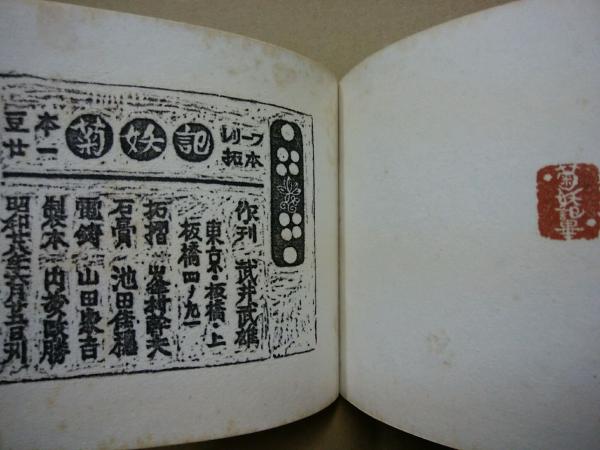 豆本
廿一
菊妖記
レリーフ
拓本
作刊 武井武雄
東京・板橋・上
板橋四ノ九一
拓摺 峯村幹夫
石膏 池田
電鑄 山田 吉
製本 内藤政勝
昭和廿八年六月廿五日刊
菊妖記畢